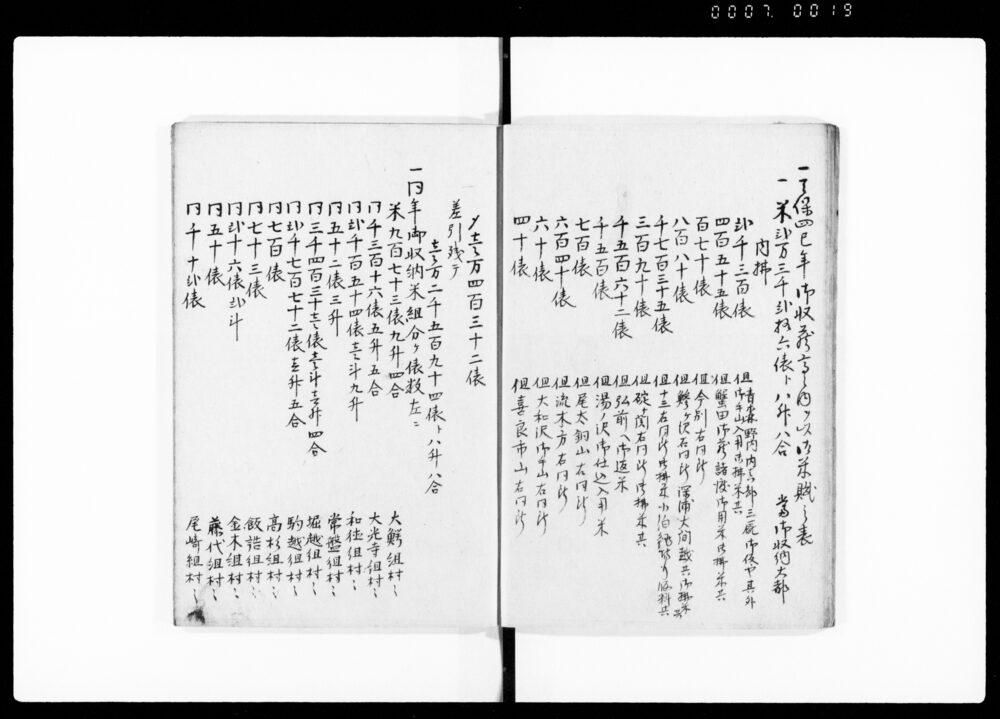 0007 0019
一天保四巳年御収蔵高之内ゟ以御米賦之表
一米弐万三千弐拾六俵ト八升八合 當御収納大都
内拂
弐千三百俵 但青森野内内真部三厩御伎や其外御手山入用御拂米共
四百五十五俵 但蟹田御蔵諸渡御用米御拂米共
百七十俵 但今別右同断
八百八十俵 但鰺ヶ沢右同断深浦大間越共御拂米共
千七百三十五俵 但十三右同断御拂米小泊
三百九十俵 但碇ヶ関右同断御拂米共
千五百六十二俵 但弘前へ御返米
千五百俵 但湯ノ沢御仕込入用米
七百俵 但尾太銅山右同断
六百四十俵 但流木方右同断
六十俵 但大和沢御手山右同断
四十俵 但喜良市山右同断
〆壱万四百三十二俵
差引残テ
壱万二千五百九十四俵ト八升八合
一同年御収納米組分ヶ俵数左ニ
米九百七十三俵九升四合 大鰐組村々
同千三百十六俵五升五合 大光寺組村々
同弐千百五十四俵壱斗九升 和徳組村々
同五十二俵三升 常盤組村々
同三千四百三十壱俵壱斗壱升四合 堀越組村々
同弐千七百七十二俵壱升五合 駒越組村々
同七百俵 高杉組村々
同七十三俵 飯詰組村々
同弐十六俵弐斗 金木組村々
同五十俵 藤代組村々
同千十弐俵 尾崎組村々